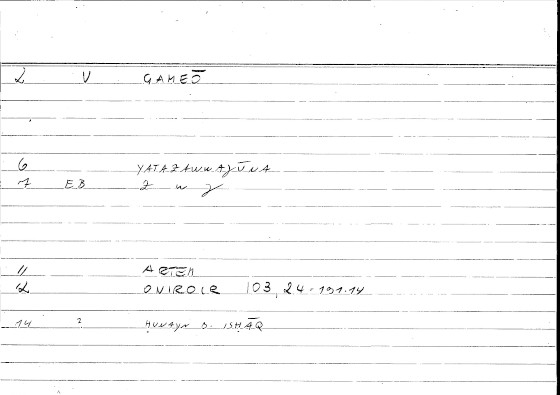 2 V GAMEŌ
6 YATAZAWWAǦŪNA
7 EB z w ǧ
11 ARTEM
12 ONIROCR 103,24-191.14
14 2 ḤUNAYN B. ISḤĀQ